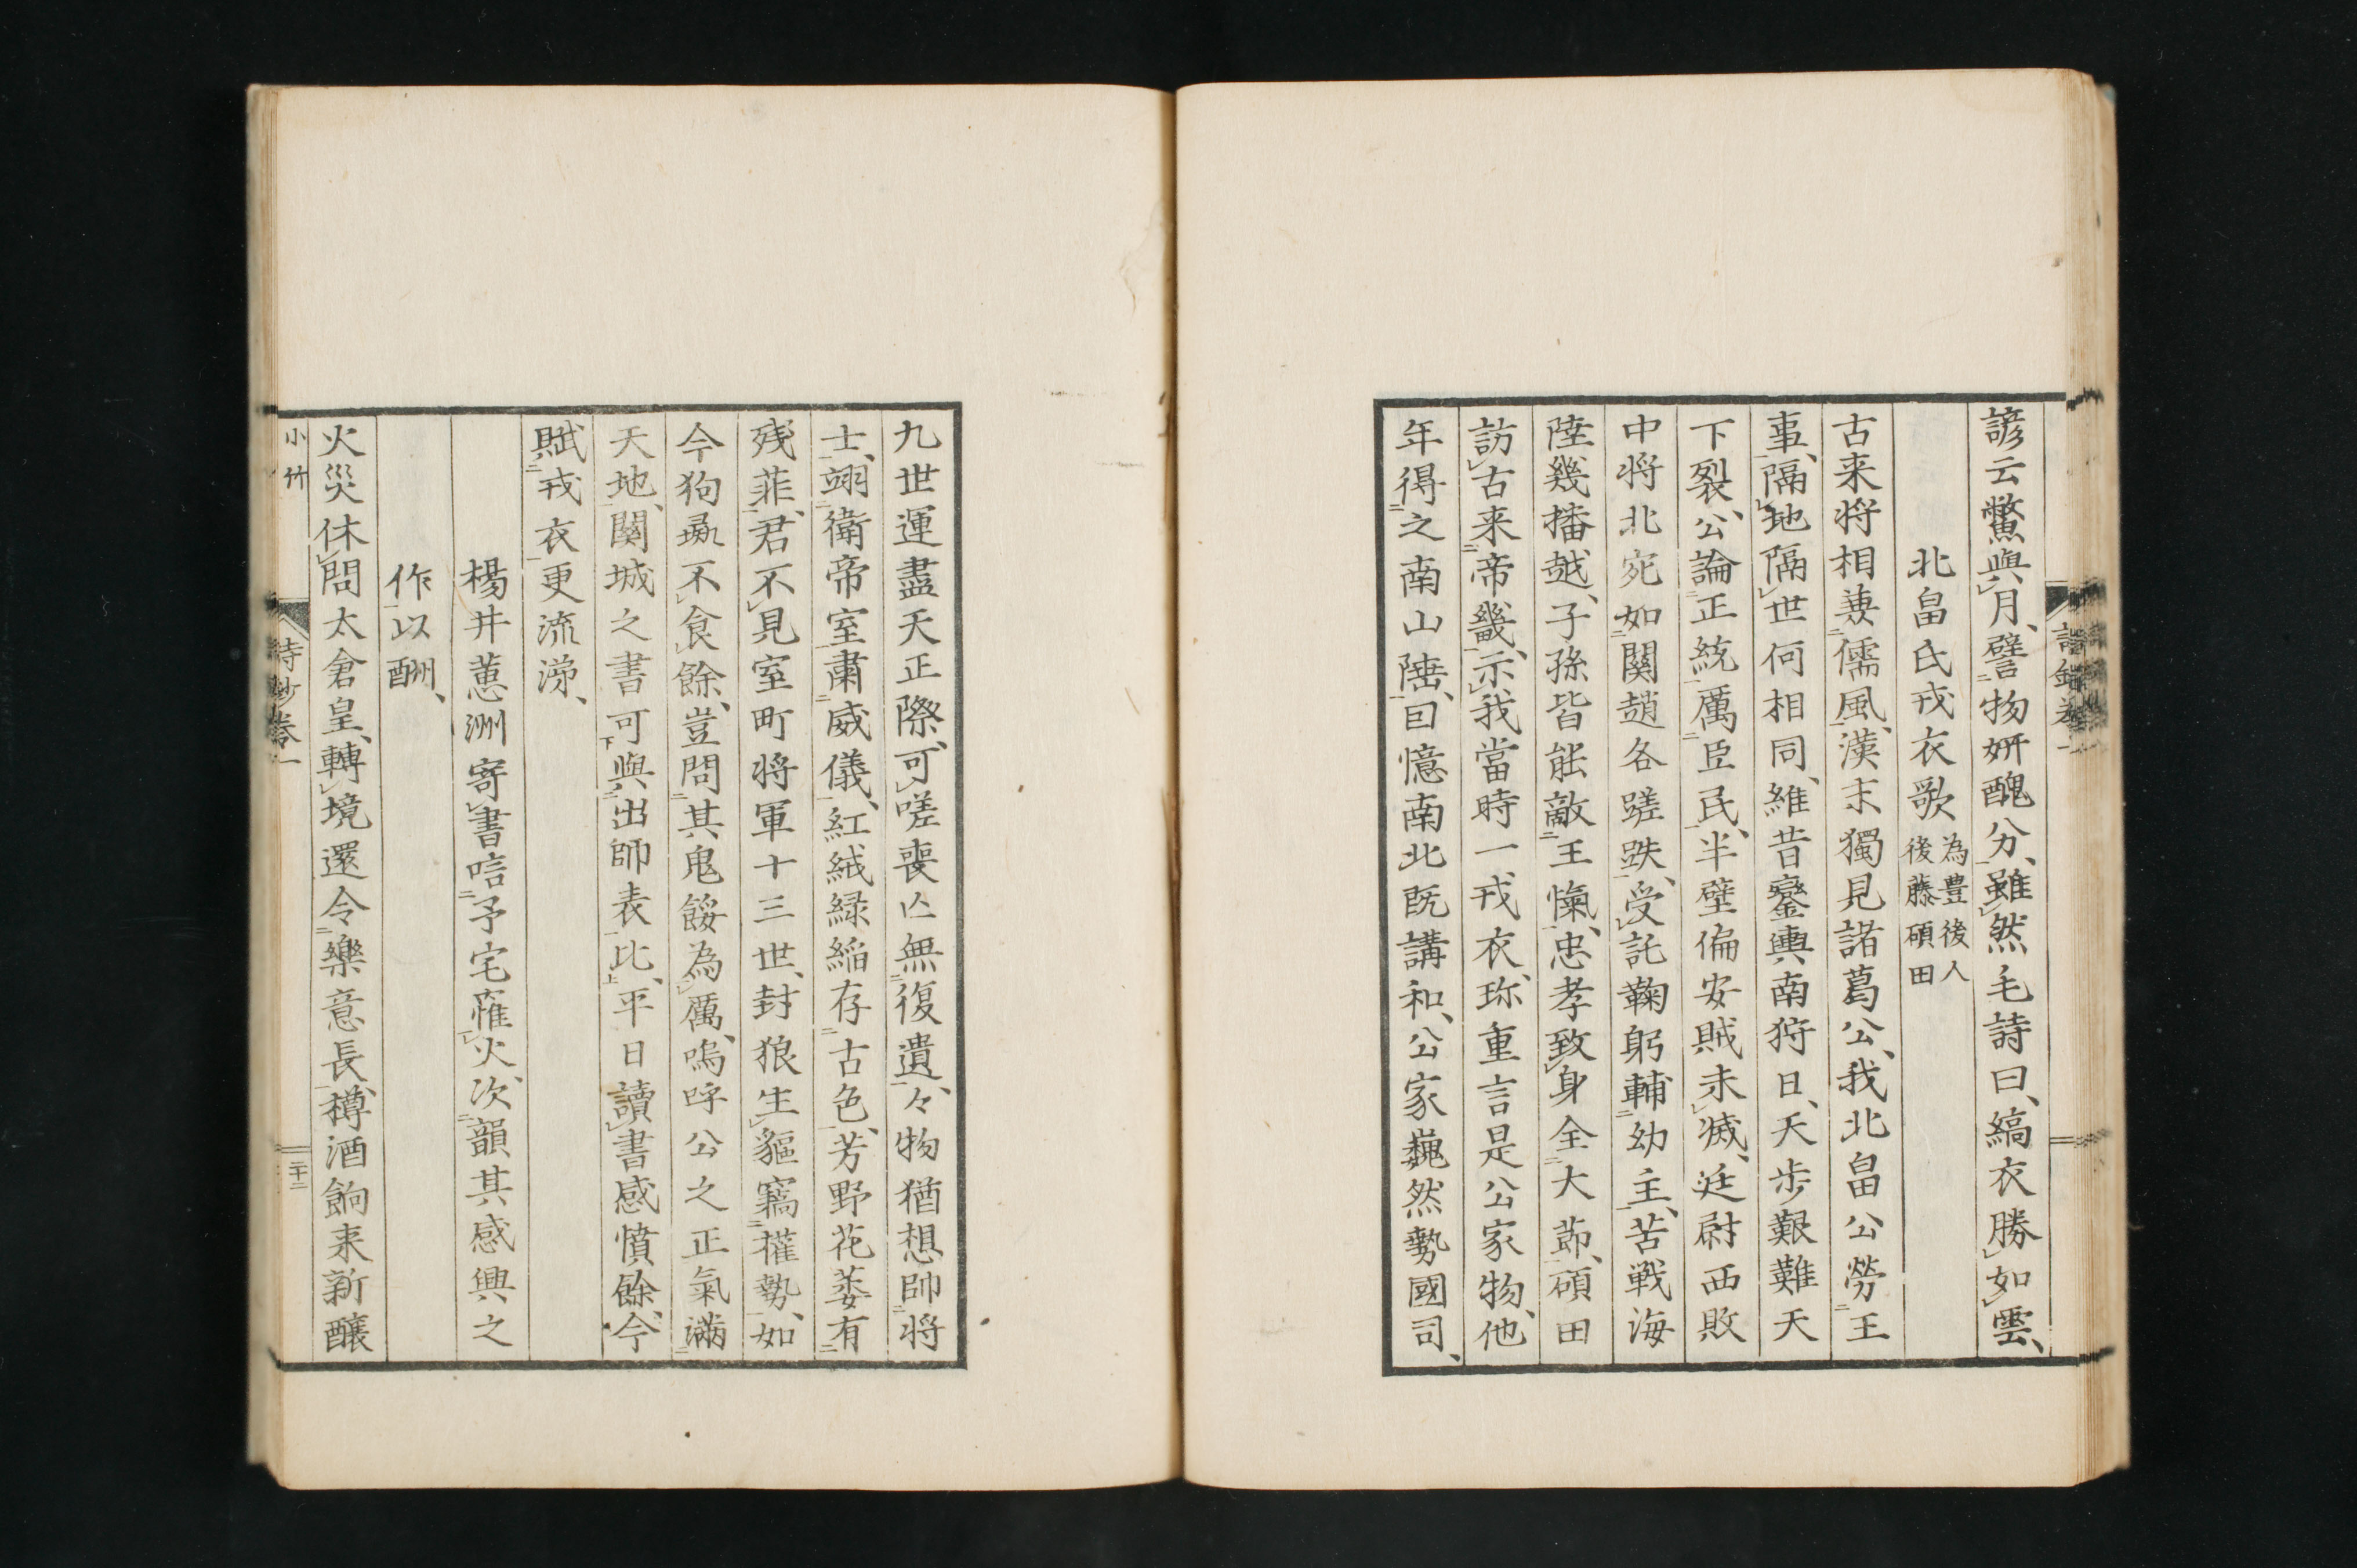 諺云鱉與月、譬物妍醜分、雖然毛詩曰、縞衣勝如雲、
北畠氏戎衣歌 為豊後人後藤碩田
古来将相蒹儒風、漢末獨見諸葛公、我北畠公勞王
事、隔地隔世何相同、維昔鑾輿南狩日、天歩艱難天
下裂、公論正統厲臣民、半壁偏安賊未滅、廷尉西敗
中将北宛如關趙各蹉跌、受託鞠躬輔幼主、苦戦海
陸幾播越、子孫皆能敵王愾、忠孝致身全大莭、碩田
訪古来帝畿、示我當時一戎衣、珎重言是公家物、他
年得之南山陲、囙憶南北既講和、公家巍然勢國司、
九世運盡天正際、可嗟喪亾無復遺、々物猶想帥将
士、翊衛帝室肅威儀、紅絨緑縚存古色、芳野花萎有
残菲、君不見室町将軍十三世、封狼生貙竊權勢、如
今狗彘不食餘、豈問其鬼餒為厲、嗚呼公之正氣滿
天地、關城之書可與出師表比、平日讀書感憤餘、今
賦戎衣更流涕、
楊井蕙洲寄書唁予宅罹火、次韻其感興之
作以酬、
火災休問太倉皇、轉境還令樂意長、樽酒餉来新釀
小竹
詩鈔卷一
二十二